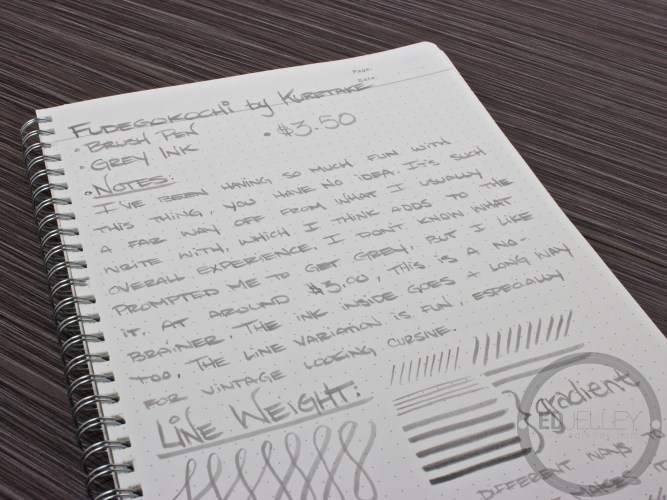 Page:
Date:
FUDEGOKOCHI by KURETAKE
• BRUSH PEN
• $3.50
• GREY INK
• NOTES:
I'VE BEEN HAVING SO MUCH FUN WITH
THIS THING, YOU HAVE NO IDEA. IT'S SUCH
A FAR WAY OFF FROM WHAT I USUALLY
WRITE WITH, WHICH I THINK ADDS TO THE
OVERALL EXPERIENCE. I DON'T KNOW WHAT
PROMPTED ME TO GET GREY, BUT I LIKE
IT. AT AROUND $3.00, THIS IS A NO-
BRAINER. THE INK INSIDE GOES A LONG WAY
TOO. THE LINE VARIATION IS FUN, ESPECIALLY
FOR VINTAGE LOOKING CURSIVE.
LINE WEIGHT:
gradient
ED JELLEY
DIFFERENT